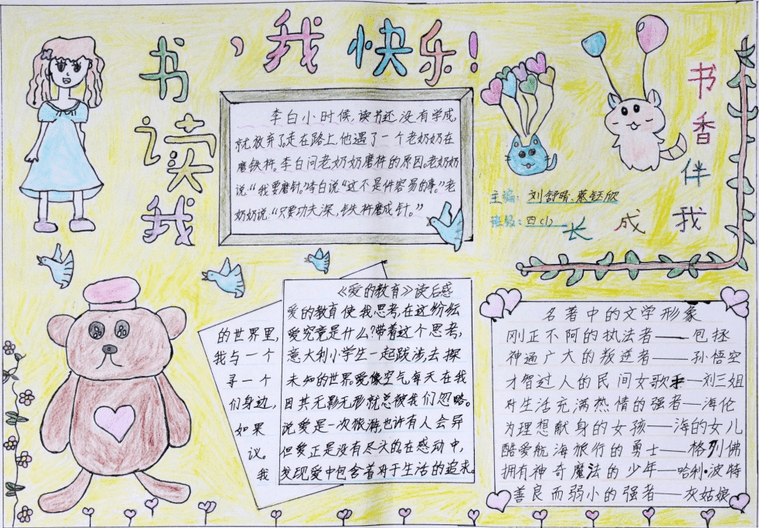 我读书,我快乐!
李白小时候,读书还没有学成,
就放弃了,走在路上,他遇了一个老奶奶在
磨铁杵。李白问老奶奶磨杵的原因,老奶奶
说“我要磨针。”李白说“这不是件容易的事。”老
奶奶说:“只要功夫深,铁杵磨成针。”
书香伴我
成长
主编:刘舒晴.
班级:四(1)
《爱的教育》读后感
爱的教育使我思考,在这纷纭
的世界里,
爱究竟是什么?带着这个思考,
我与一个
意大利小学生一起跋涉去探
寻一个
未知的世界.爱像空气,每天在我
们身边,
因其无影无形就总被我们忽略。
如果
说爱是一次旅游,也许有人会异
议。
但爱正是没有尽头的,在感动中,
我
发现爱中包含着对于生活的追求
名著中的文学形象
刚正不阿的执法者——包拯
神通广大的叛逆者——孙悟空
才智过人的民间女歌手—刘三姐
对生活充满热情的强者—海伦
为理想献身的女孩—海的女儿
酷爱航海旅行的勇士—格列佛
拥有神奇魔法的少年—哈利·波特
善良而弱小的强者—灰姑娘